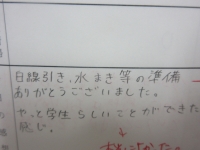 日線引き、水まき等の準備
ありがとうございました。
やっと学生らしいことができた
感じ。